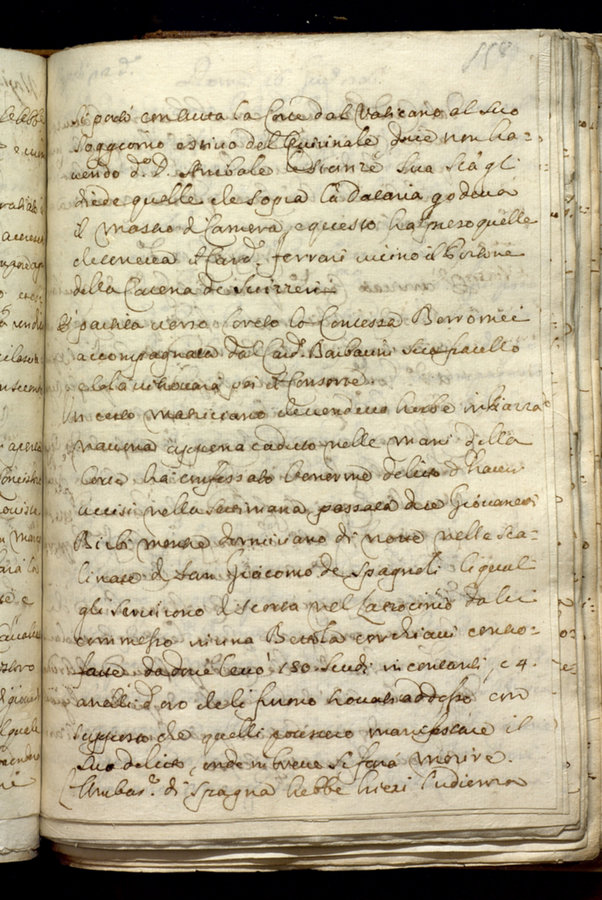 158
si portò con tutta la Corte dal Vaticano al suo
soggiorno estivo del Quirinale, dove non ha-
vendo d.º D. Anibale le stanze Sua Stà gli
diede quelle che sopra la Dataria godeva
il Mastro di Camera, e questo ha preso quelle
che teneva il Card. Ferrari vicino il Portone
della Catena de Suizzeri
È partita verso Loreto la Contessa Borromei
accompagnata dal Card. Barbarini suo fratello
e la la ritrovarà poi il Consorte.
Un certo Matriciano che vendeva herbe in Piazza
Navona appena caduto nelle mani della
Corte ha confessato l'enorme delitto d'haver
uccisi nella settimana passata due Giovanetti
Birbi mentre dormivano di notte nelle sca-
linate di San Giacomo de Spagnoli li quali
gli servirono di scorta nel latrocinio da lui
commesso in una Bettola con chiavi contra-
fatte da dove levò 150 scudi in contanti, e 4
anelli d'oro che li furno trovati addosso con
supposto che quelli potessero manifestare il
suo delitto, onde in breve si farà morire.
L'Ambas.r di Spagna hebbe hieri l'udienza